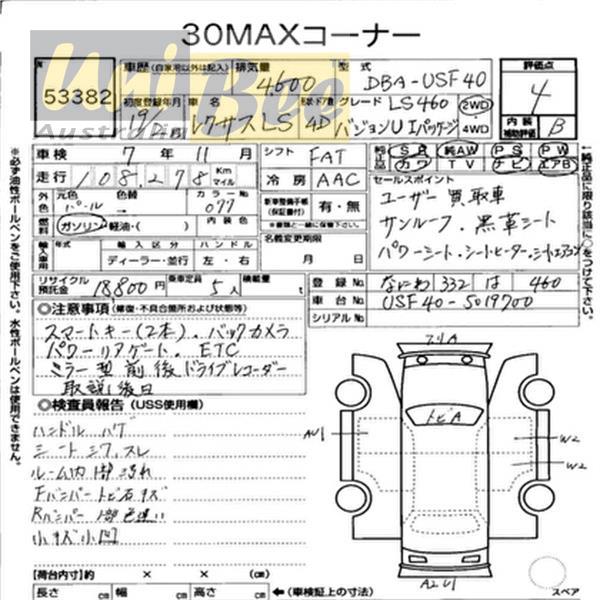 30MAXコーナー
UniBee
Australia
53382
車歴 (自家用以外は記入)
排気量 4600
型式 DBA-USF40
評価点 4
初度登録年月 19/ 
車名 レクサスLS
形状 ドア数 4D
グレード LS460
バージョンU Iパッケージ
2WD・4WD
内装 補助評価 B
車検 7年11月
シフト FAT
純正品 SR 純AW PS PW
カワ TV ナビ エアB
走行 108,278 Km マイル
冷房 AAC
セールスポイント
ユーザー買取車
サンルーフ.黒革シート
パワーシート.シートヒーター.シートエアコン
外色 元色 パール 色替 カラーNo 077
燃料 ガソリン・軽油・( ) 内装色
新車整備手帳 (保証書付) 有・無
輸入車用 年式 輸入区分 ハンドル
ディーラー・並行 左・右
名義変更期限 月 日
リサイクル預託金 18800円 乗車定員 5人 積載量 t
登録No なにわ 332 は 460
車台No USF40-5019700
シリアルNo
◎注意事項 (修復・不具合箇所および状態等)
スマートキー(2本).バックカメラ
パワーリアゲート.ETC
ミラー型前後ドライブレコーダー
取説後日
◎検査員報告 (USS使用欄)
ハンドル ハゲ
シート シワ.スレ
ルーム内 1部汚れ
Fバンパー トビ石キズ
Rバンパー 1部色違い
小キズ小凹
フリA
トビA
AU1
W2
W2
A2U1
【荷台内寸】約 × × (㎝)
長さ ㎝ 幅 ㎝ 高さ ㎝ ←(車検証上の寸法)
スペア
※必ず油性ボールペンをご使用下さい。水性ボールペンは使用できません。
↑純正品に限り該当に○をつけて下さい。